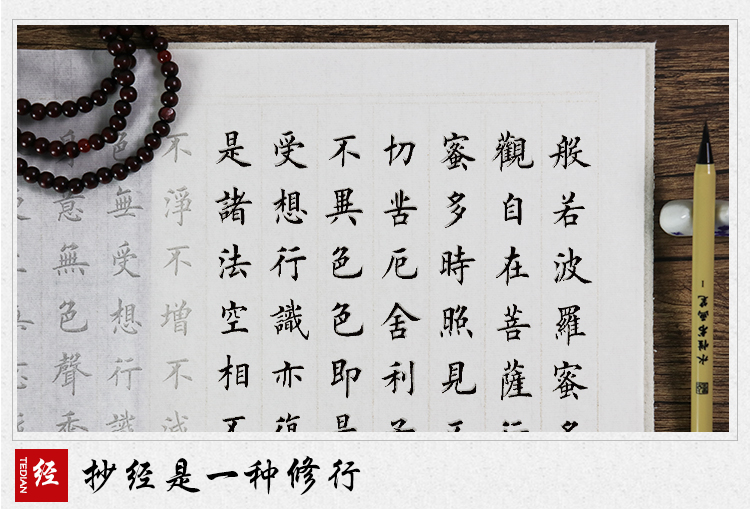 般若波羅蜜多
觀自在菩薩行
蜜多時照見五
切苦厄舍利子
不異色色即是
受想行識亦復
是諸法空相不
不淨不增不減
色無受想行識
意無色聲香
TEDIAN 经
抄经是一种修行